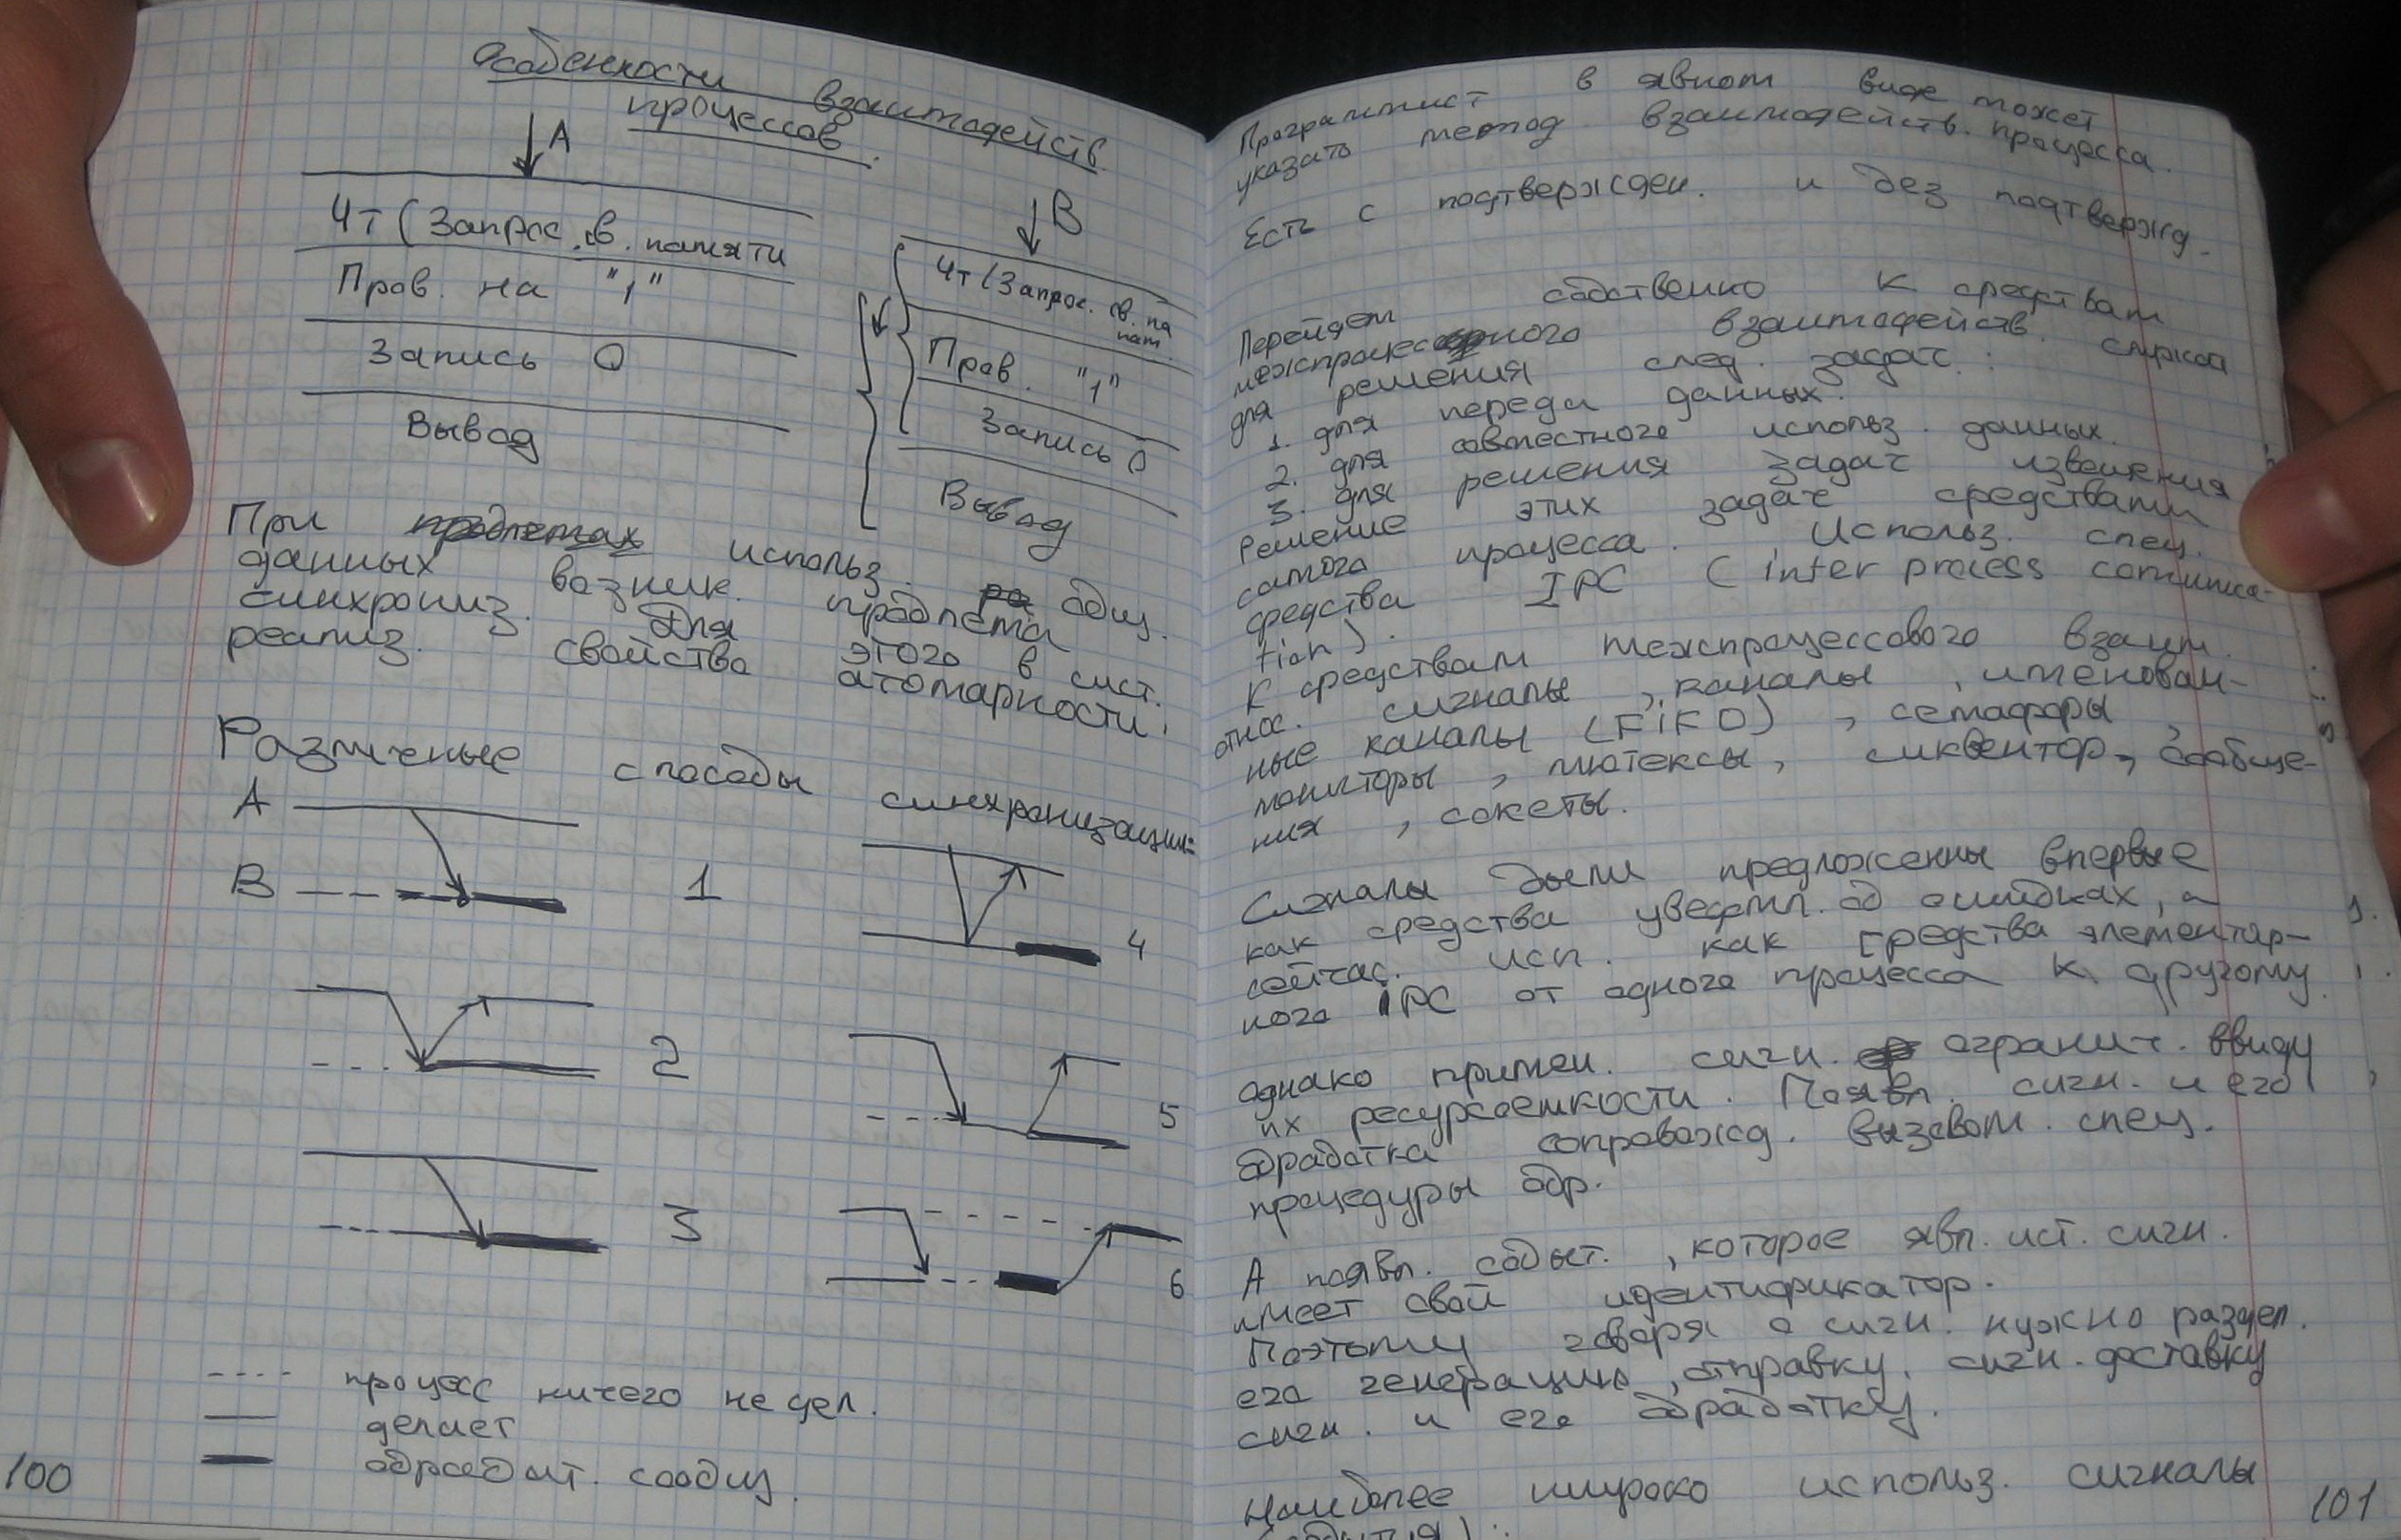 Особенности взаимодейств.
процессов.
A
Чт (Запрос. св. памяти
Пров. на "1"
Запись 0
Вывод
B
Чт (Запрос. св. па
пам.
Пров. "1"
Запись 0
Вывод
При использ. общ.
данных возник. проблема
синхрониз. Для этого в сист.
реализ. свойства атомарности.
Различные способы синхронизации:
A
B
1
4
2
5
3
6
---- процесс ничего не дел.
— делает
— обработ. сообщ.
100
Программист в явном виде может
указать метод взаимодейств. процесса.
Есть с подтвержден. и без подтвержд.
Перейдем собственно к средствам
межпроцессорного взаимодейств. служат
для решения след. задач:
1. для переда данных.
2. для совместного использ. данных.
3. для решения задач извещения
Решение этих задач средствами
самого процесса. Использ. спец.
средства IPC (inter process communica-
tion).
К средствам межпроцессового взаим.
относ. сигналы, каналы, именован-
ные каналы (FiFO), семафоры,
мониторы, мютексы, сиквентор, сообще-
ния, сокеты.
Сигналы были предложенны впервые
как средства уведомл. об ошибках, а
сейчас. исп. как средства элементар-
ного IPC от одного процесса к другому.
Однако примен. сигн. огранич. ввиду
их ресурсоемкости. Появл. сигн. и его
обработка сопровожд. вызовом спец.
процедуры обр.
А появл. событ., которое явл. ист. сигн.
имеет свой идентификатор.
Поэтому говоря о сигн. нужно раздел.
его генерацию, отправку. сигн. доставку
сигн. и его обработку.
Наиболее широко использ. сигналы
(события):
101